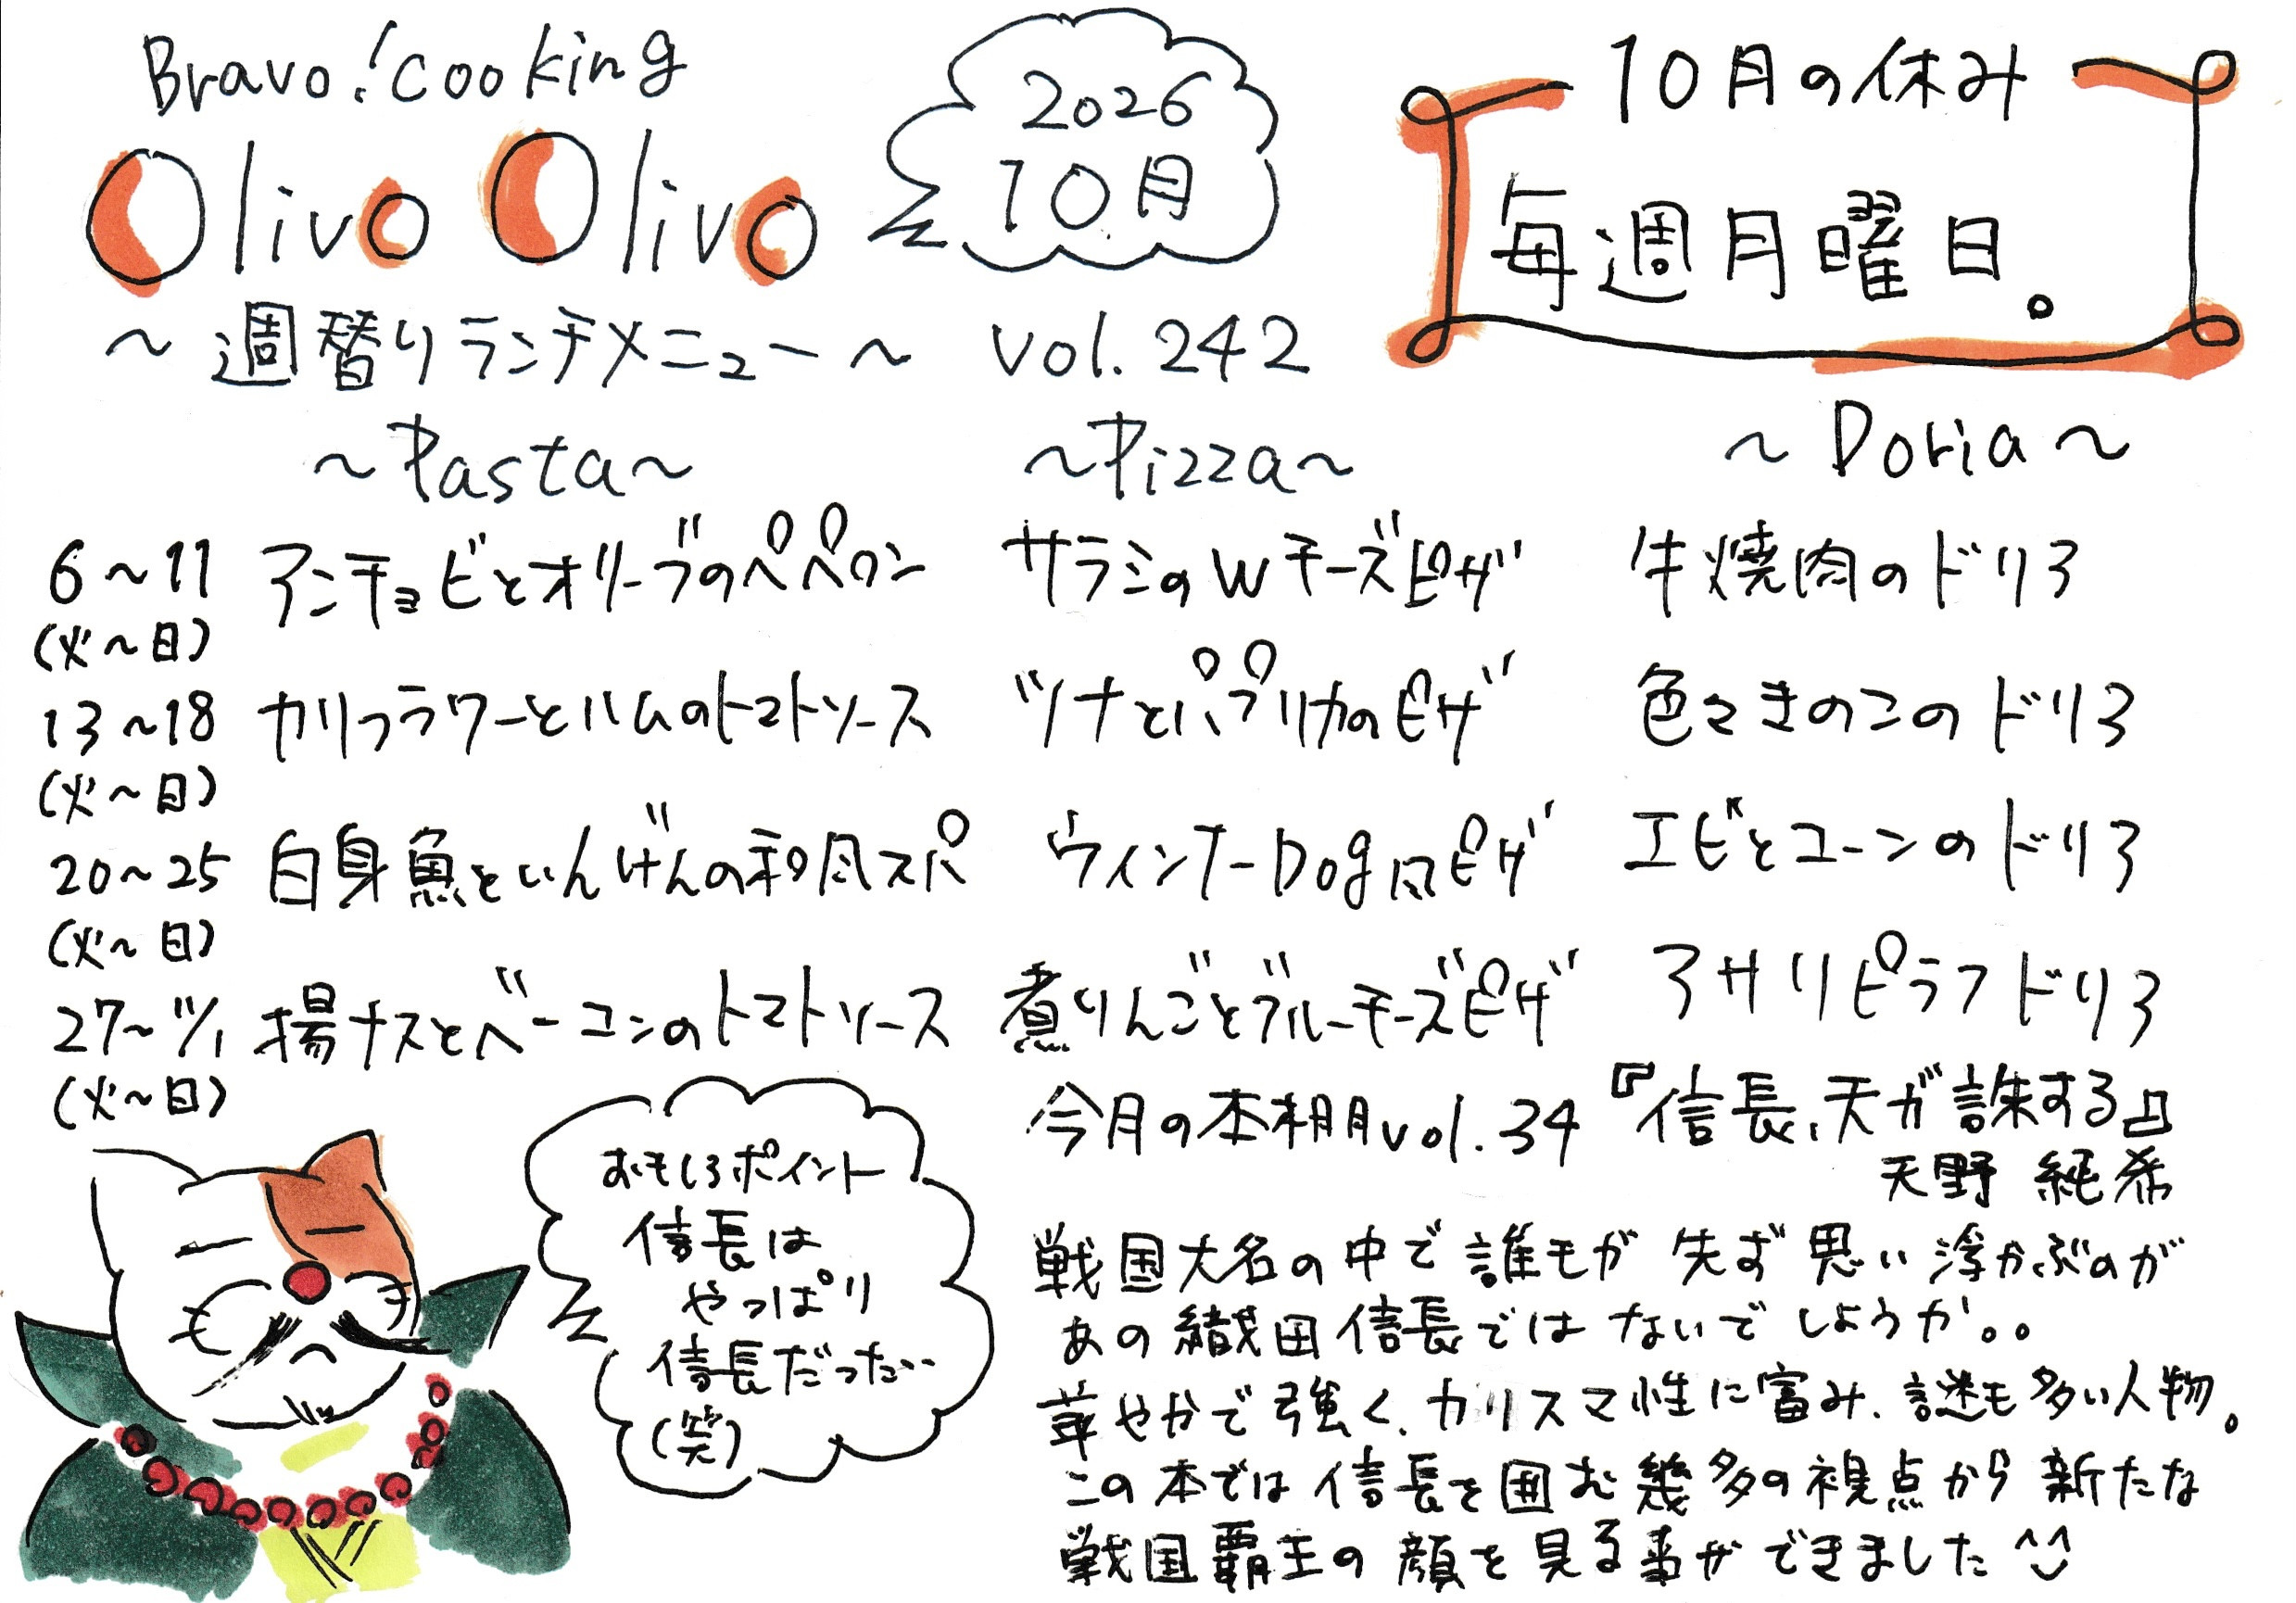 Bravo! cooking
Olivo Olivo
2026
10月
～週替りランチメニュー～ vol.242
10月の休み
毎週月曜日。
～Pasta～ ～Pizza～ ～Doria～
6～11 アンチョビとオリーブのペペロン サラミのWチーズピザ 牛焼肉のドリア
(火～日)
13～18 カリフラワーとハムのトマトソース ツナとパプリカのピザ 色々きのこのドリア
(火～日)
20～25 白身魚といんげんの和風スパ ウィンナーDog風ピザ エビとコーンのドリア
(火～日)
27～11/1 揚ナスとベーコンのトマトソース 煮りんごとブルーチーズピザ アサリピラフドリア
(火～日)
おもしろポイント
信長は
やっぱり
信長だった…
(笑)
今月の本棚vol.34 『信長、天が誅する』
天野 純希
戦国大名の中で誰もが先ず思い浮かぶのが
あの織田信長ではないでしょうか。。
華やかで強く、カリスマ性に富み、謎も多い人物。
この本では信長を囲む幾多の視点から新たな
戦国覇王の顔を見る事ができました^^